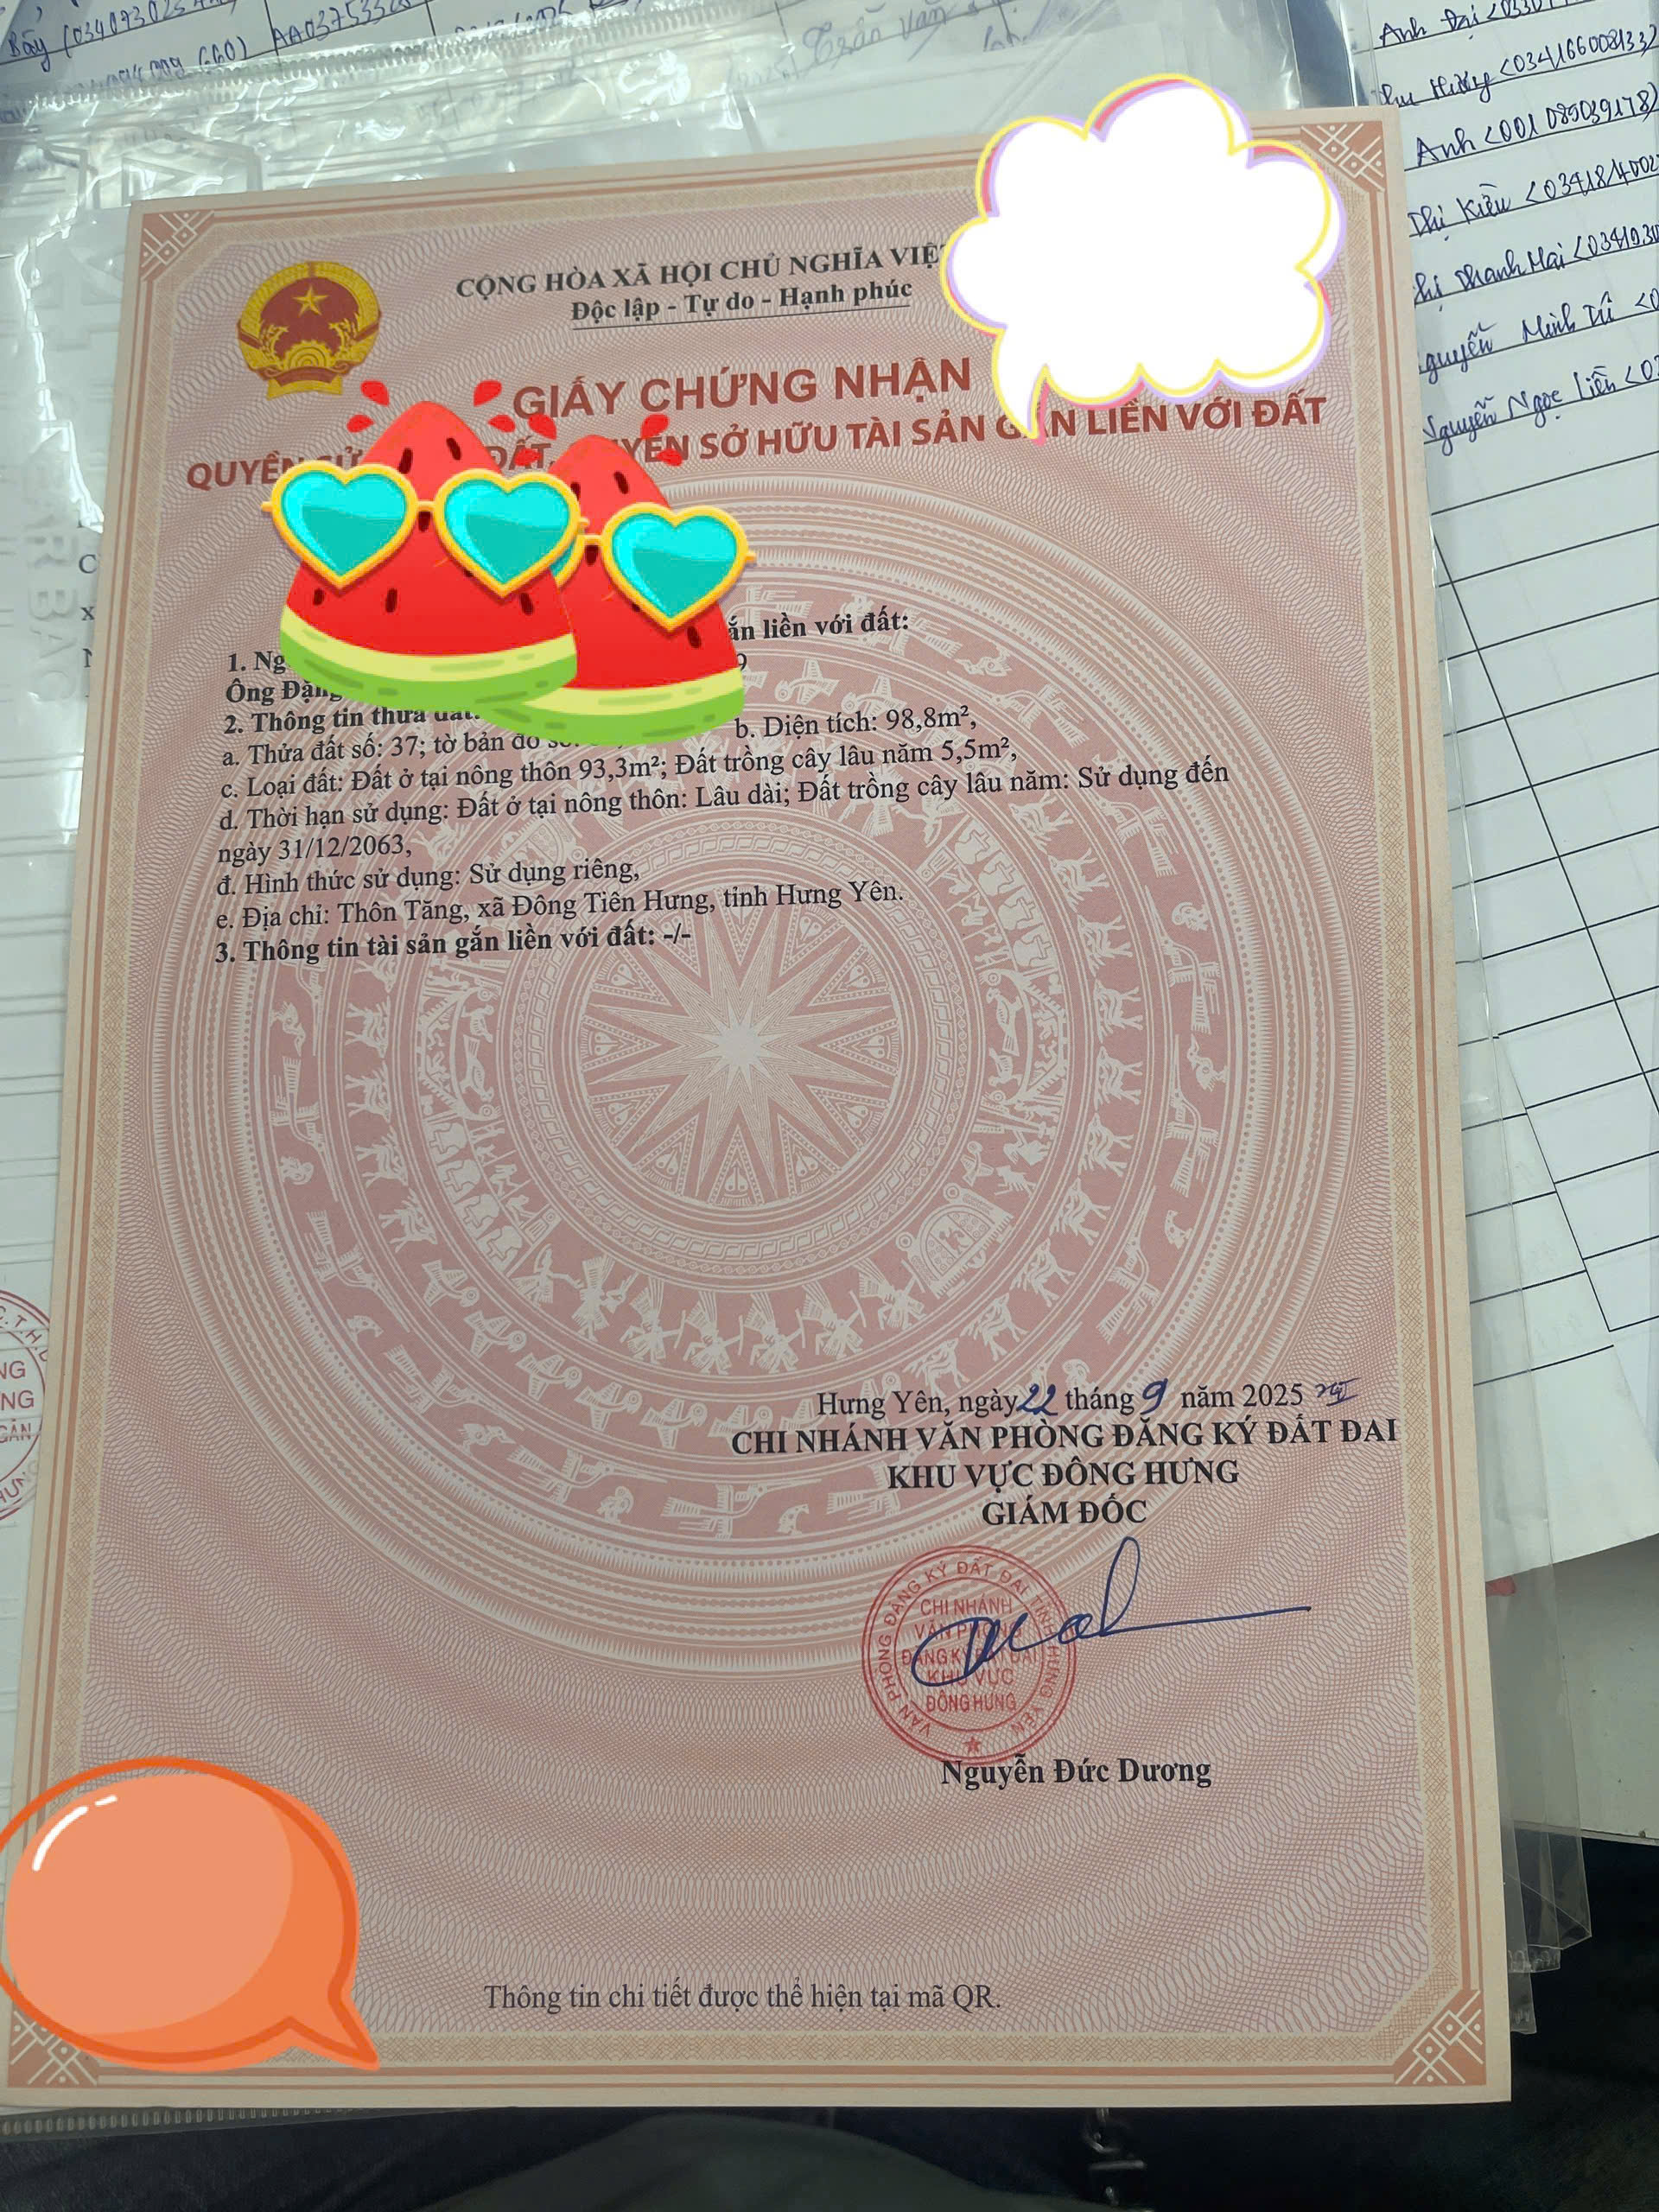 Bẩy (034073025
AA03753
Trần Văn
Anh Đại <0330
Thu Hường <034166008133>
Anh <001089039178>
Thị Kiều <034184002
Thị Thanh Mai <0341930
Nguyễn Minh Tú <0
Nguyễn Ngọc Liên <03
CỘNG HÒA XÃ HỘI CHỦ NGHĨA VIỆ
Độc lập - Tự do - Hạnh phúc
GIẤY CHỨNG NHẬN
QUYỀN SỬ ĐẤT, YỀN SỞ HỮU TÀI SẢN GẮN LIỀN VỚI ĐẤT
ắn liền với đất:
1. Ng 9
Ông Đặng
2. Thông tin thửa đất:
a. Thửa đất số: 37; tờ bản đồ số: b. Diện tích: 98,8m²,
c. Loại đất: Đất ở tại nông thôn 93,3m²; Đất trồng cây lâu năm 5,5m²,
d. Thời hạn sử dụng: Đất ở tại nông thôn: Lâu dài; Đất trồng cây lâu năm: Sử dụng đến
ngày 31/12/2063,
đ. Hình thức sử dụng: Sử dụng riêng,
e. Địa chỉ: Thôn Tăng, xã Đông Tiên Hưng, tỉnh Hưng Yên.
3. Thông tin tài sản gắn liền với đất: -/-
Hưng Yên, ngày 22 tháng 9 năm 2025
CHI NHÁNH VĂN PHÒNG ĐĂNG KÝ ĐẤT ĐAI
KHU VỰC ĐÔNG HƯNG
GIÁM ĐỐC
VĂN PHÒNG ĐĂNG KÝ ĐẤT ĐAI TỈNH HƯNG YÊN
CHI NHÁNH
VĂN PHÒNG
ĐĂNG KÝ ĐẤT ĐAI
KHU VỰC
ĐÔNG HƯNG
Nguyễn Đức Dương
Thông tin chi tiết được thể hiện tại mã QR.